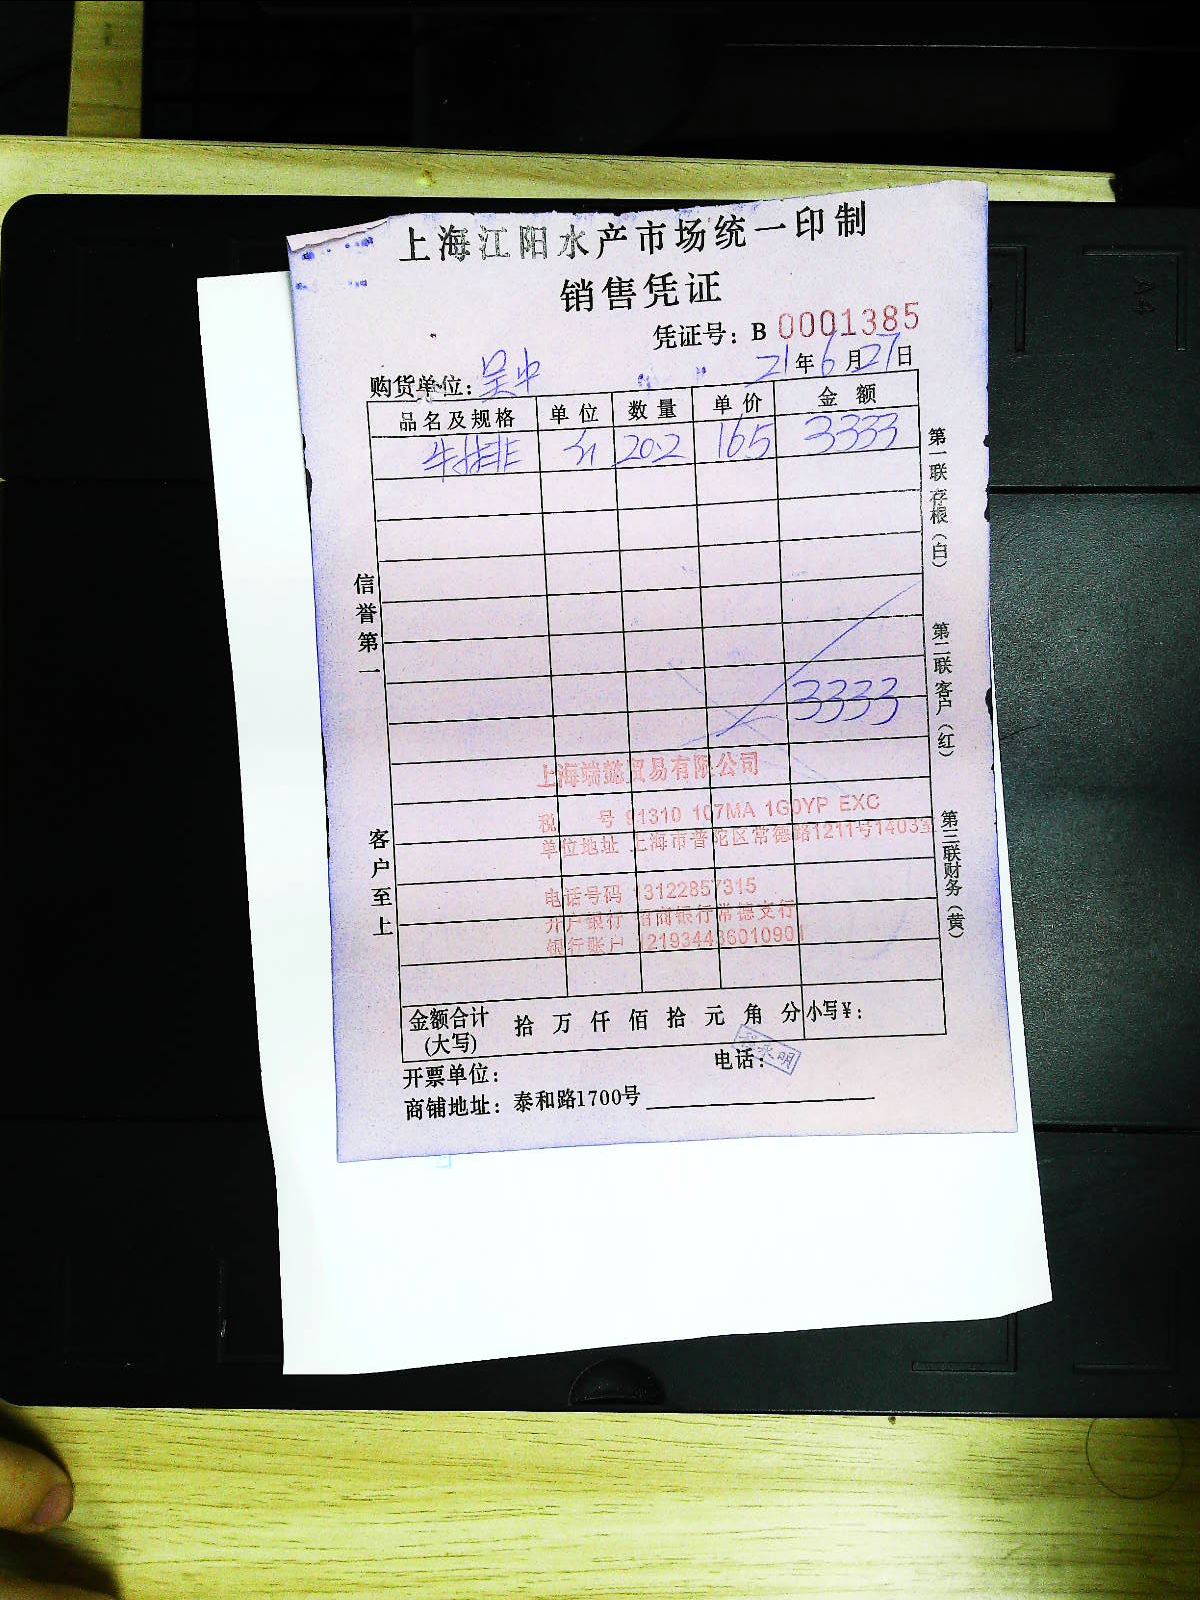 上海江阳水产市场统一印制
销售凭证
凭证号：B 0001385
21年6月27日
购货单位：吴中
品名及规格 单位 数量 单价 金额
牛排 斤 20.2 165 3333
3333
信誉第一
客户至上
第一联 存根（白）
第二联 客户（红）
第三联 财务（黄）
上海端懿贸易有限公司
税 号 91310 107MA 1G0YP EXC
单位地址 上海市普陀区常德路1211号1403室
电话号码 13122857315
开户银行 招商银行常德支行
银行账户 121934436010901
金额合计(大写) 拾 万 仟 佰 拾 元 角 分 小写￥：
开票单位： 电话：
永明
商铺地址：泰和路1700号